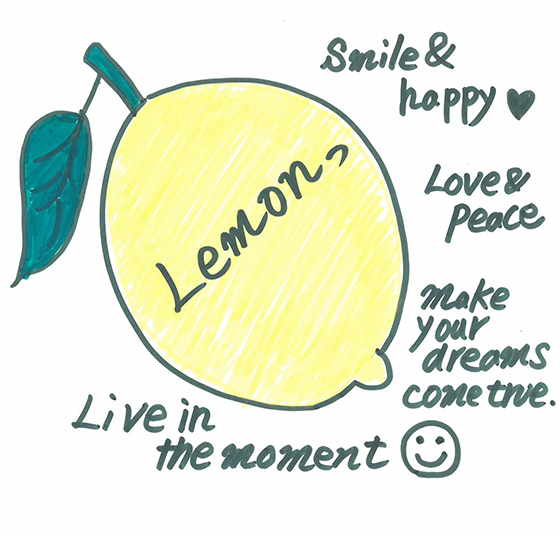 Smile &
happy ♥
Lemon,
Love &
peace
make
your
dreams
come true.
Live in
the moment